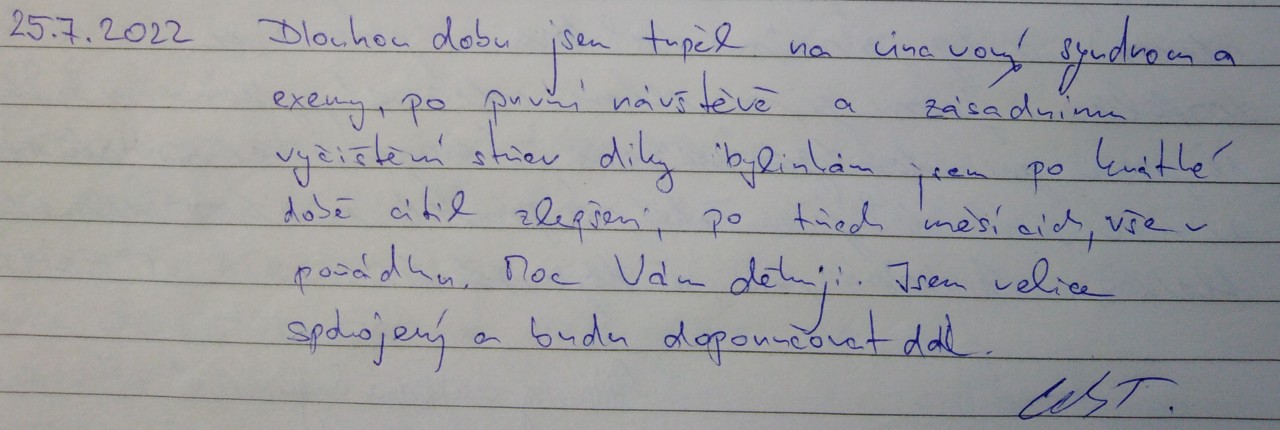 25.7.2022 Dlouhou dobu jsem trpěl na únavový syndrom a
exemy, po první návštěvě a zásadnímu
vyčištění střev díky bylinkám jsem po krátké
době cítil zlepšení, po třech měsících, vše v
pořádku. Moc Vám děkuji. Jsem velice
spokojený a budu doporučovat dál.